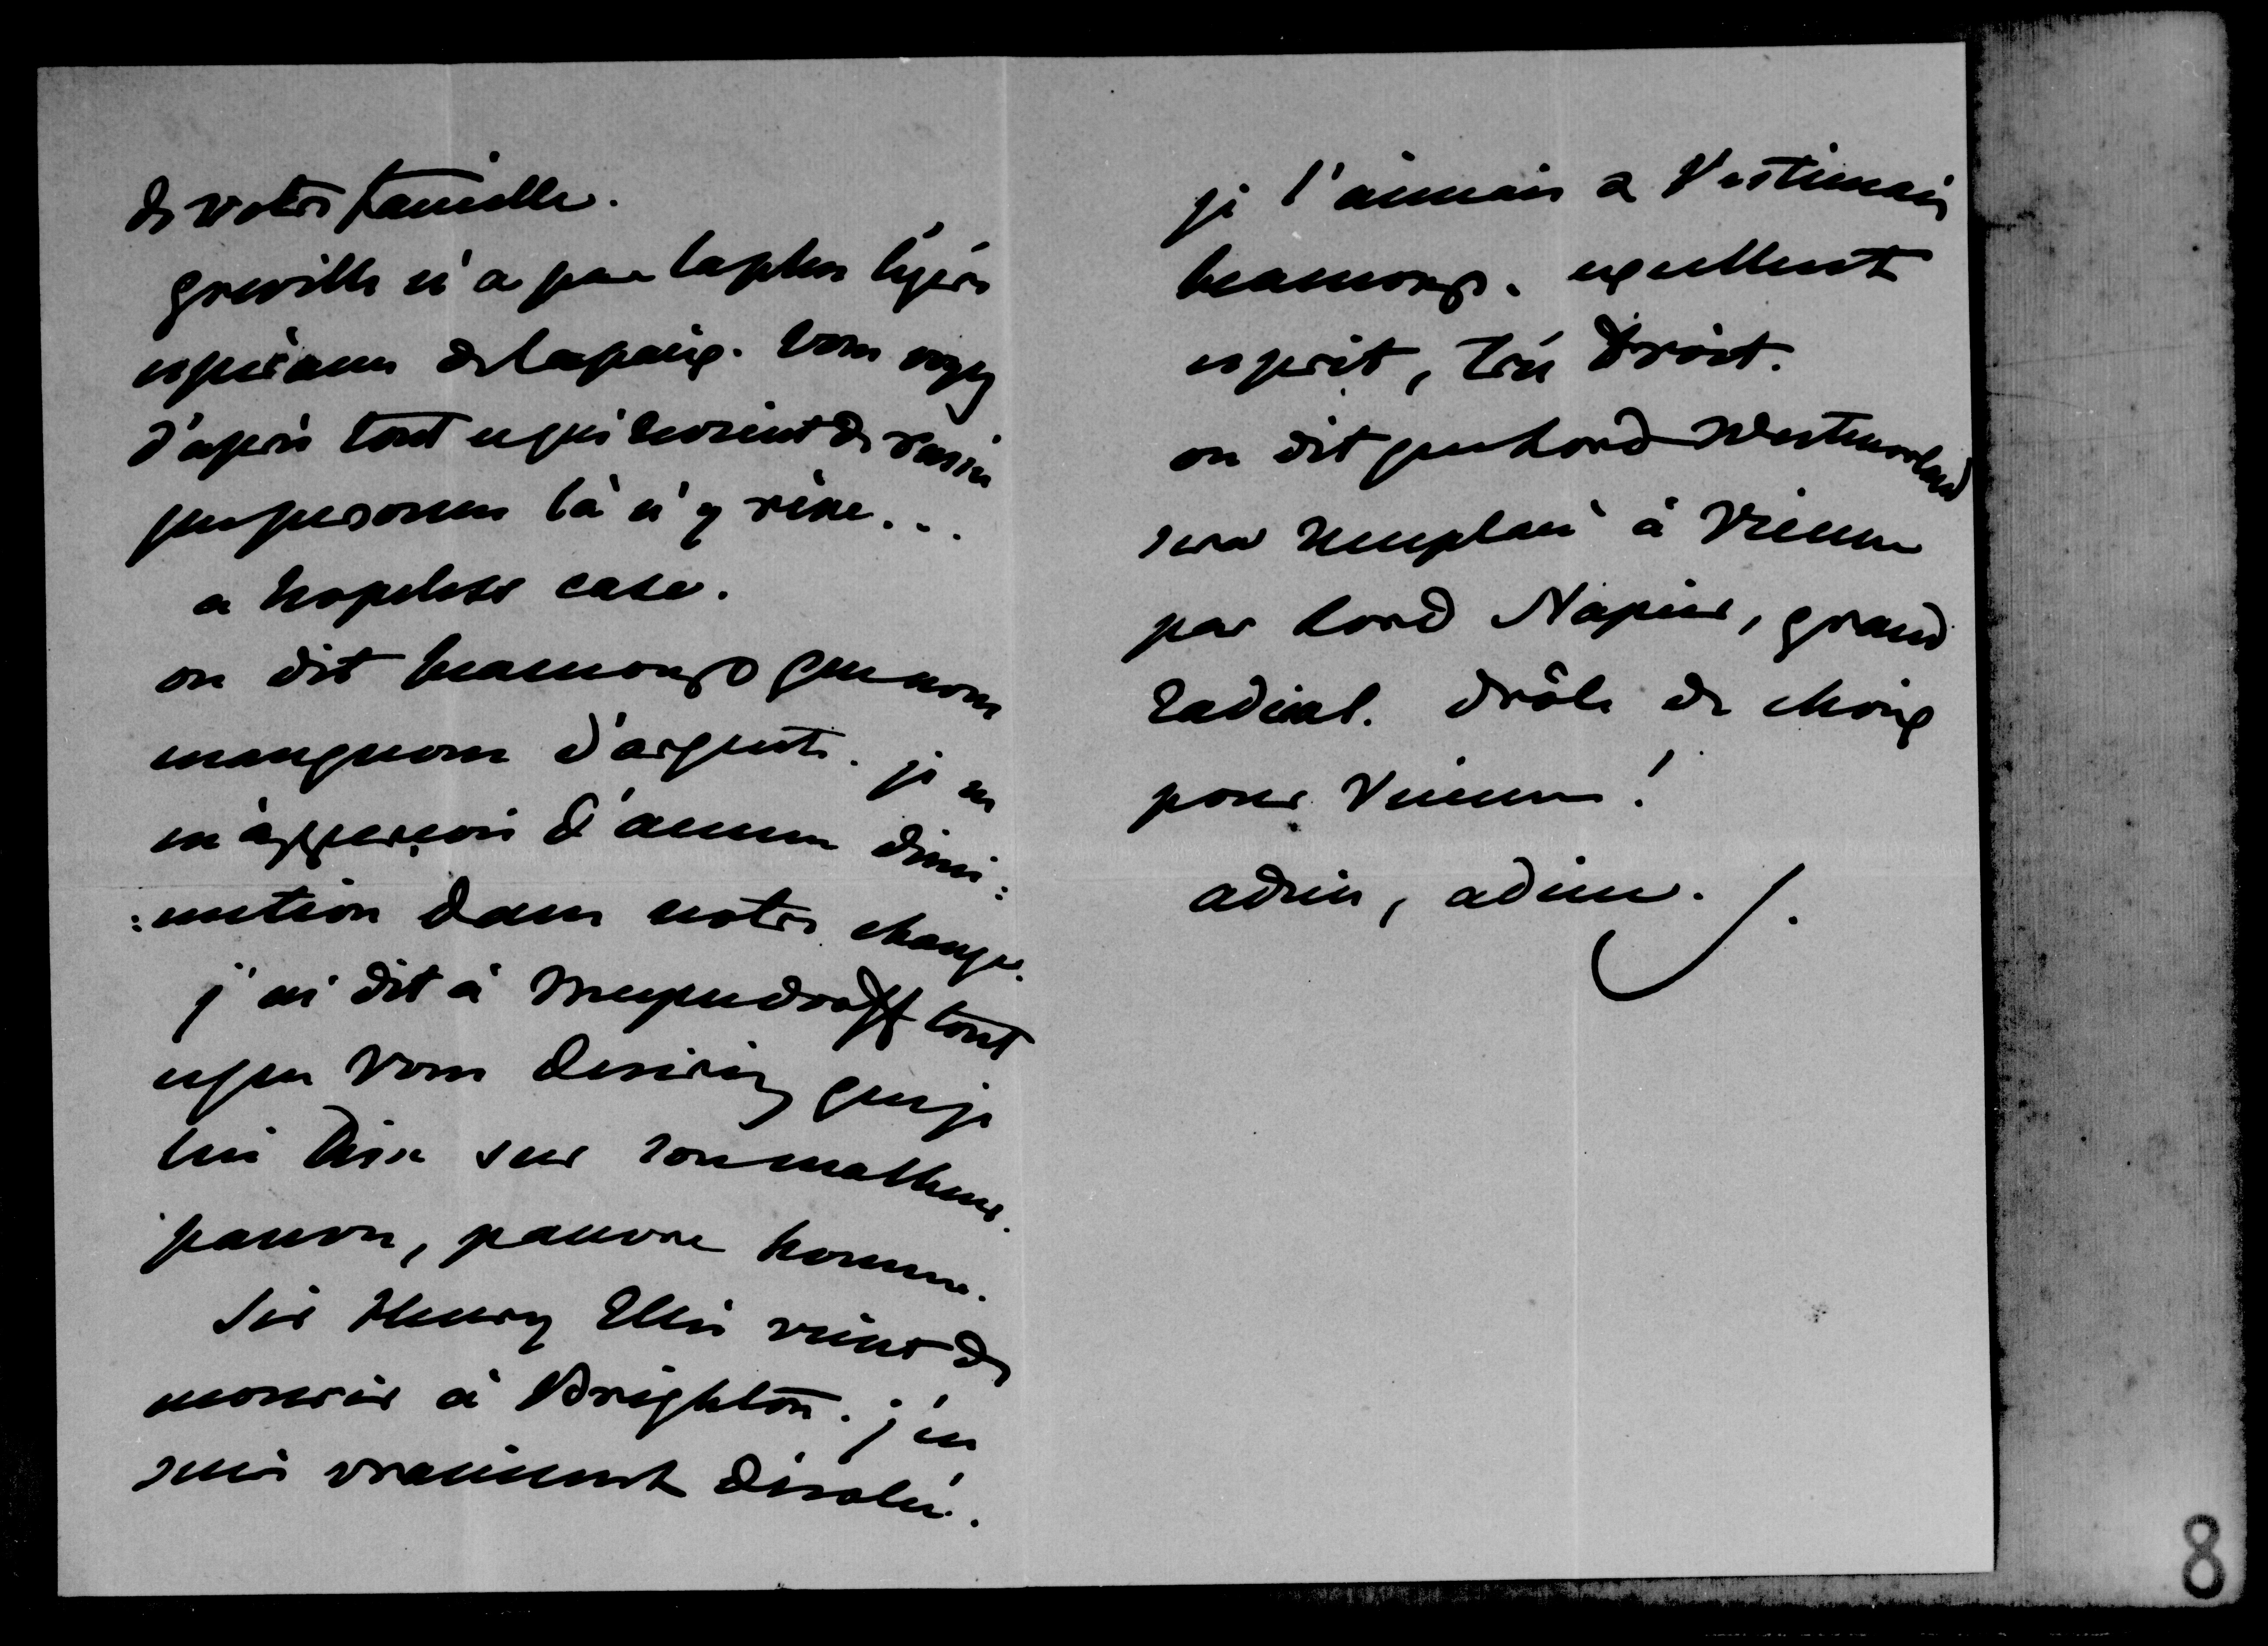 de votre famille.
greville n'a pas la plus légère
espérance de la paix. vous voyez
d'après tout ce qui revient de
que personne là n'y rêve...
a hopeless case.
on dit beaucoup que nous
manquons d'argent. je ne
m'apperçois d'aucune dimi:
:nution dans notre change.
j'ai dit à Meyendorff tout
ce que vous desiriez que je
lui dise sur son malheur.
pauvre, pauvre homme.
Sir Henry Ellis vient de
mourir à Brighton. j'en
suis vraiment désolée.
je l'aimais & l'estimais
beaucoup. excellent
esprit, très droit.
on dit que Lord Westmorland
sera remplacé à Vienne
par Lord Napier, grand
radical. drôle de choix
pour Vienne!
adieu, adieu.
8